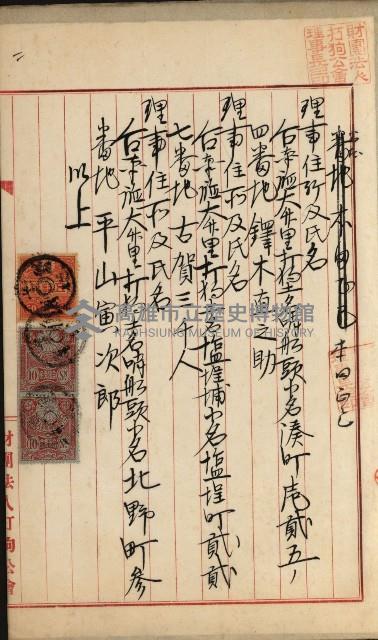 番地 本田正己 本田正己
理事住所及氏名
台南庁大竹里打狗土名哨船頭小名湊町壱貳五ノ
四番地 鐸木直之助
理事住所及氏名
台南庁大竹里打狗土名塩埕埔小名塩埕町貳貳
七番地 古賀三千人
理事住所及氏名
台南庁大竹里打狗土名哨船頭小名北野町参
番地 平山寅次郎
以上
財團法人打狗公會理事長印
財團法人打狗公會
高雄市立歷史博物館
KAOHSIUNG MUSEUM OF HISTORY